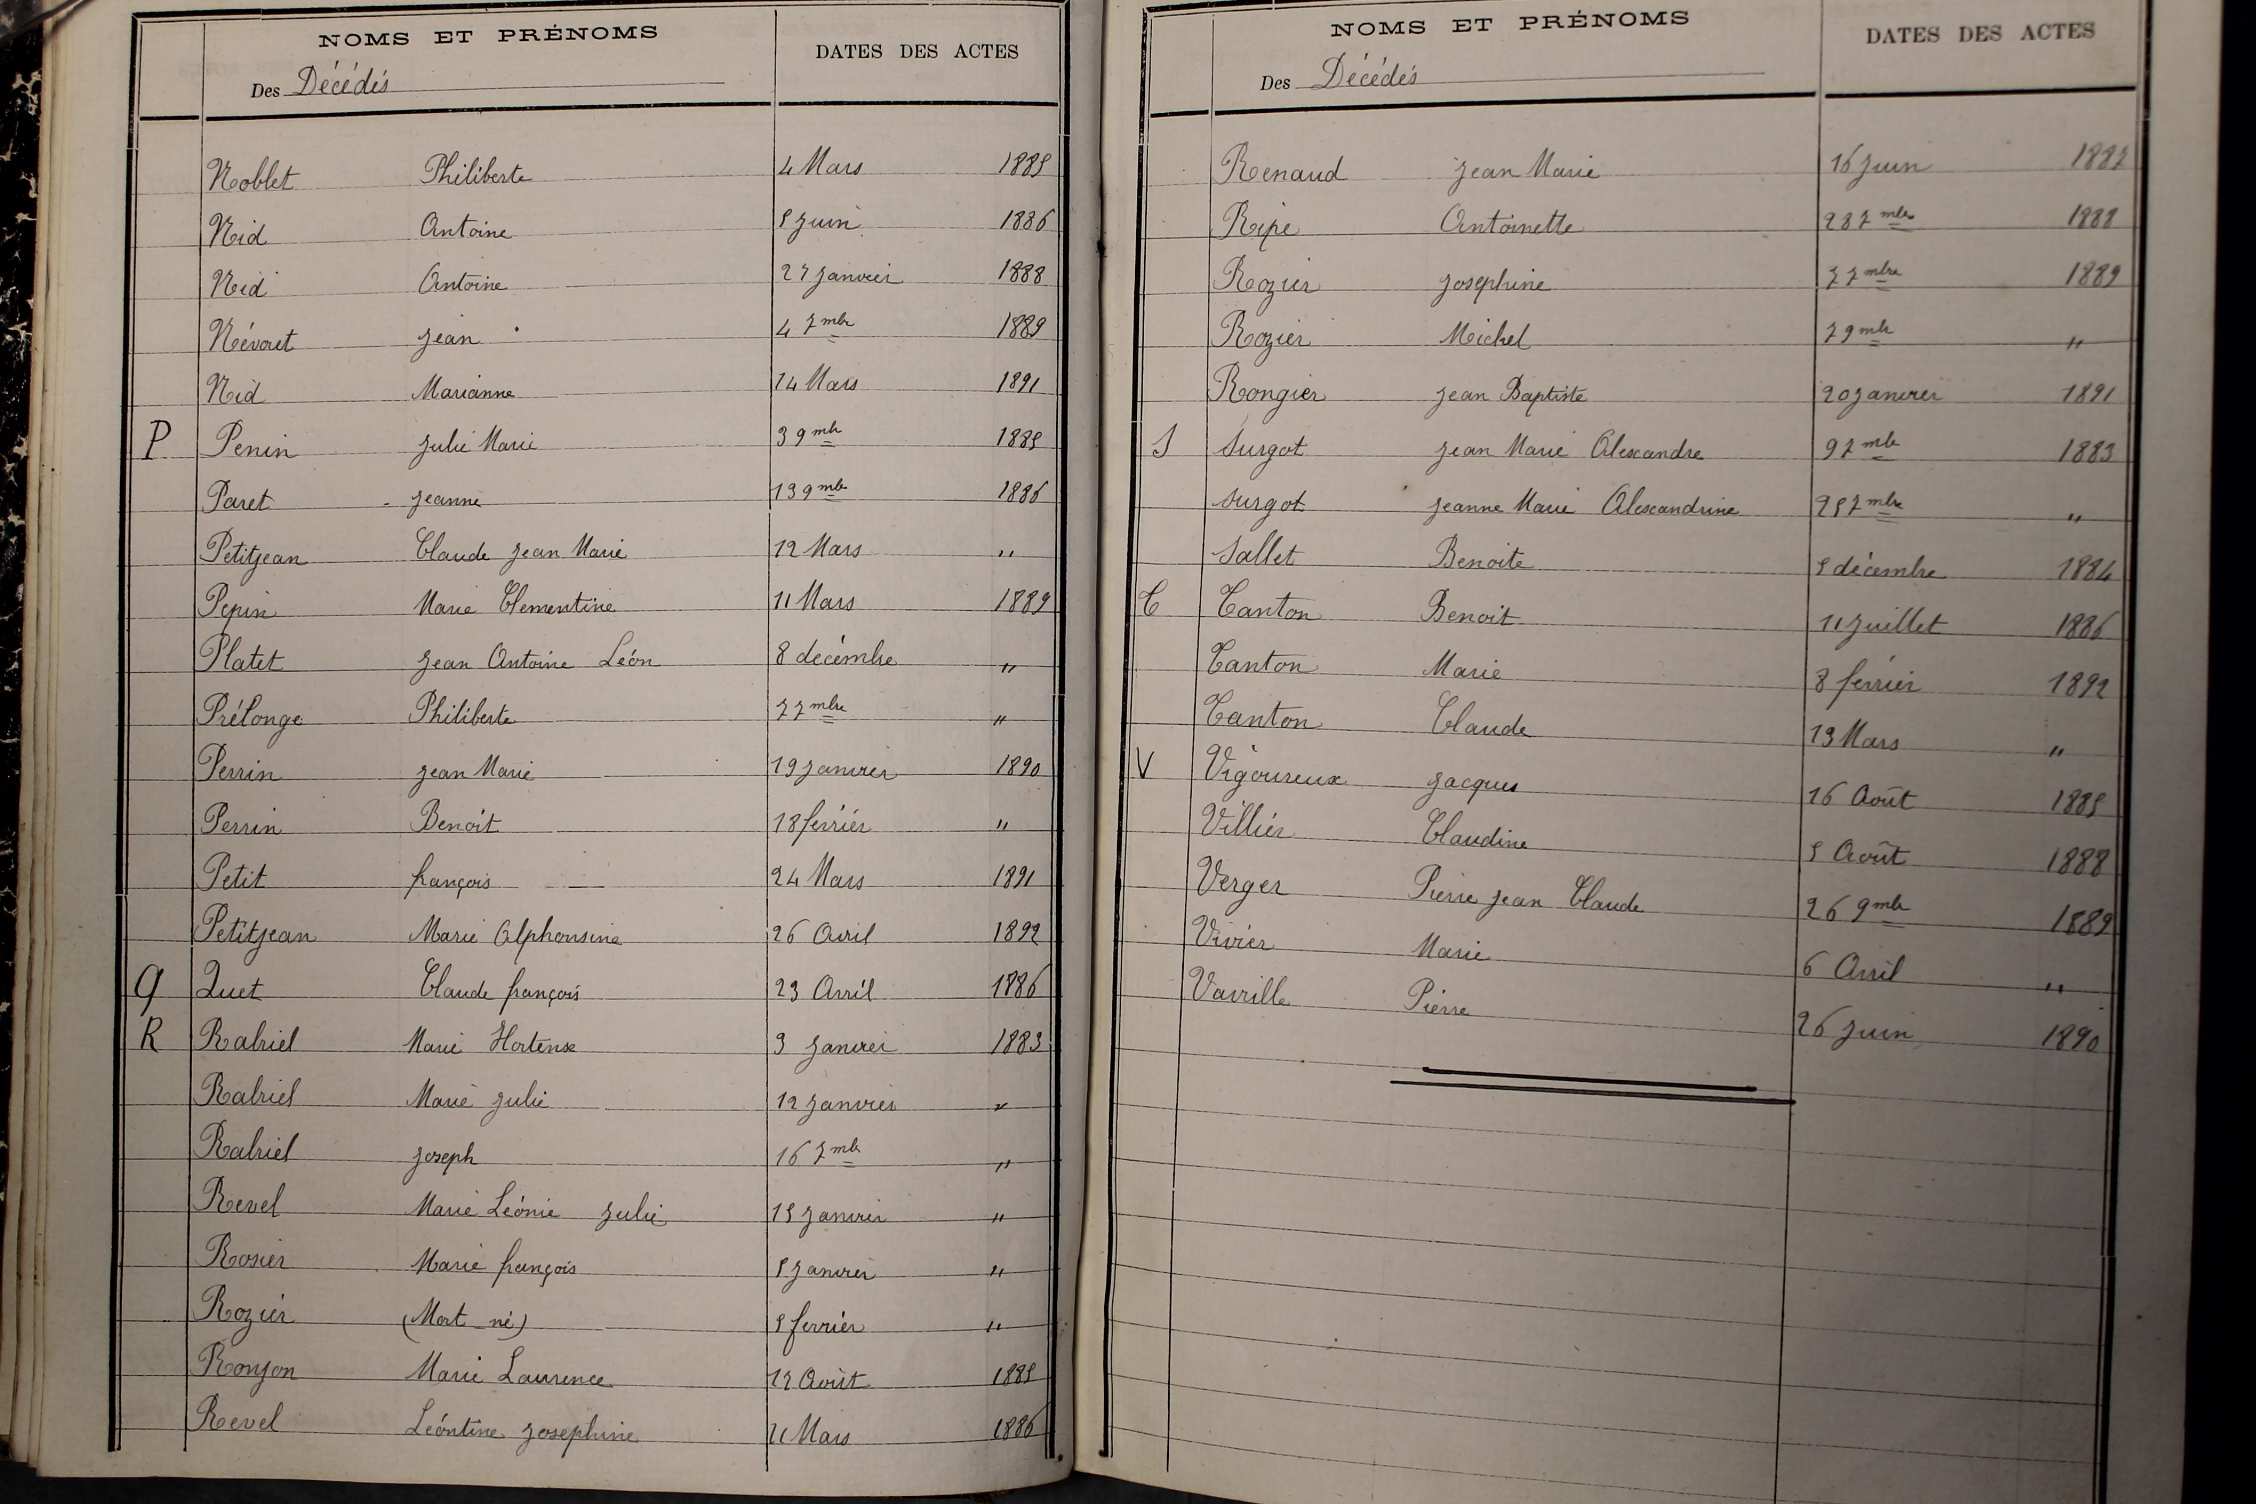 NOMS ET PRÉNOMS DATES DES ACTES
Des Décédés
Noblet Philiberte 4 Mars 1885
Nid Antoine 5 Juin 1886
Nid Antoine 27 Janvier 1888
Névoret Jean 4 7mbre 1889
Nid Marianne 14 Mars 1891
P Penin Julie Marie 3 9mbre 1885
Paret Jeanne 13 9mbre 1886
Petitjean Claude Jean Marie 12 Mars "
Pepin Marie Clementine 11 Mars 1889
Platet Jean Antoine Léon 8 décembre "
Prélonge Philiberte 7 7mbre "
Perrin Jean Marie 19 Janvier 1890
Perrin Benoit 18 février "
Petit françois 24 Mars 1891
Petitjean Marie Alphonsine 26 Avril 1892
Q Quet Claude françois 23 Avril 1886
R Rabriel Marie Hortense 3 Janvier 1883
Rabriel Marie Julie 12 Janvier "
Rabriel Joseph 16 7mbre "
Revel Marie Léonie Julie 15 Janvier "
Rosier Marie françois 5 Janvier "
Rozier (Mort né) 5 février "
Ronjon Marie Laurence 12 Août 1885
Revel Léontine Josephine 21 Mars 1886
NOMS ET PRÉNOMS DATES DES ACTES
Des Décédés
Renaud Jean Marie 16 Juin 1887
Ripe Antoinette 28 7mbre 1888
Rozier Josephine 7 7mbre 1889
Rozier Michel 7 9mbre "
Rongier Jean Baptiste 20 Janvier 1891
S Surgot Jean Marie Alexandre 9 7mbre 1883
Surgot Jeanne Marie Alexandrine 25 7mbre "
Sallet Benoite 5 décembre 1884
T Tanton Benoit 11 Juillet 1886
Tanton Marie 8 février 1892
Tanton Claude 13 Mars "
V Vigoureux Jacques 16 Août 1885
Villier Claudine 5 Août 1888
Verger Pierre Jean Claude 26 9mbre 1889
Vivier Marie 6 Avril "
Vaiville Pierre 26 Juin 1890